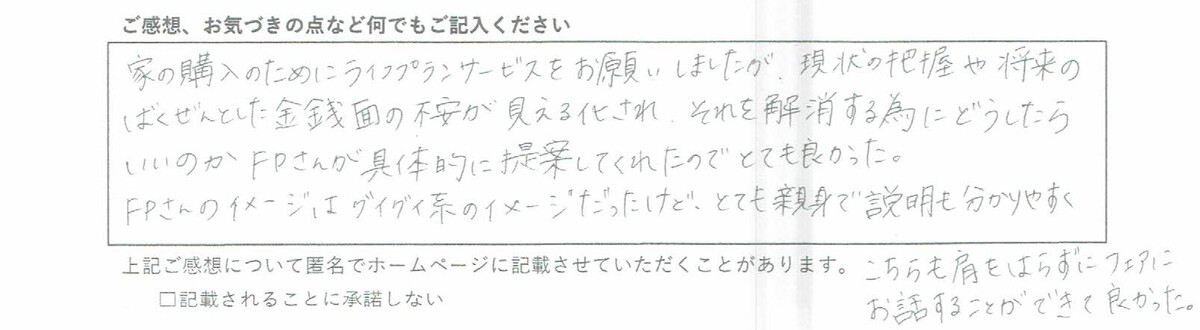 ご感想、お気づきの点など何でもご記入ください
家の購入のためにライフプランサービスをお願いしましたが、現状の把握や将来の
ばくぜんとした金銭面の不安が見える化され、それを解消する為にどうしたら
いいのかFPさんが具体的に提案してくれたのでとても良かった。
FPさんのイメージはグイグイ系のイメージだったけど、とても親身で説明も分かりやすく
上記ご感想について匿名でホームページに記載させていただくことがあります。
□記載されることに承諾しない
こちらも肩をはらずにフェアに
お話することができて良かった。